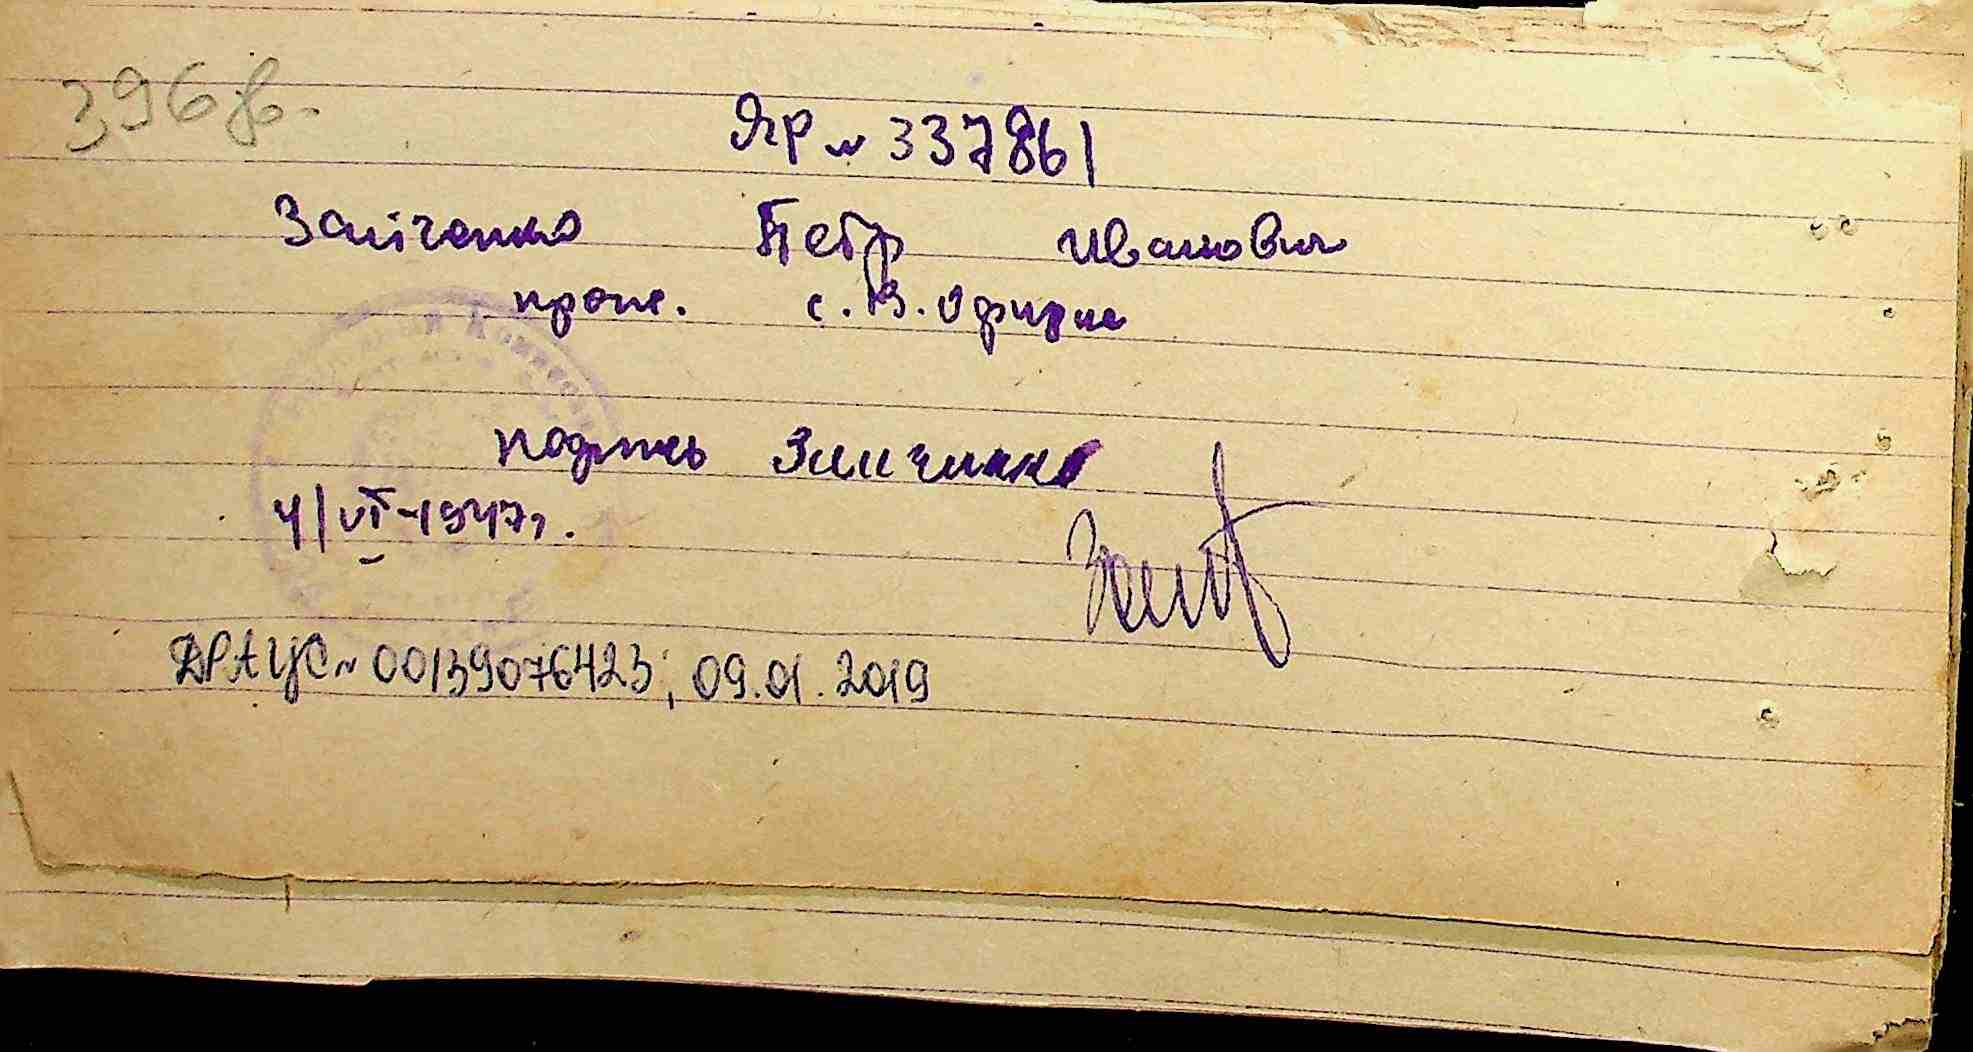 396 зв.
ЯГР № 337861
Зайченко Петр Иванович
прож. с. В. Офирна
подпись Зайченко
4/VI-1947г.
ДРАЦС № 00139076423; 09.01.2019